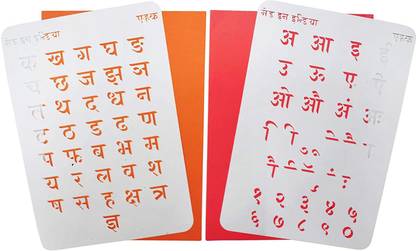 मेड इन इन्डिया
क ख ग घ ङ
च छ ज झ ञ
त थ द ध न
ट ठ ड ढ ण
प फ ब भ म
य र ल व श
ष स ह क्ष त्र
ज्ञ
मेड इन इन्डिया
अ आ इ
उ ऊ ए
ओ औ अं अः
१ २ ३ ४ ५
६ ७ ८ ९ ०